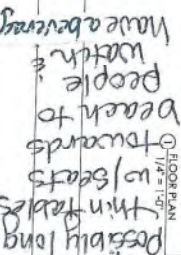 Possibly long
thin tables
w/ seats
towards
beach to
people
watch &
have a beverage
① FLOOR PLAN
1/4" = 1'-0"